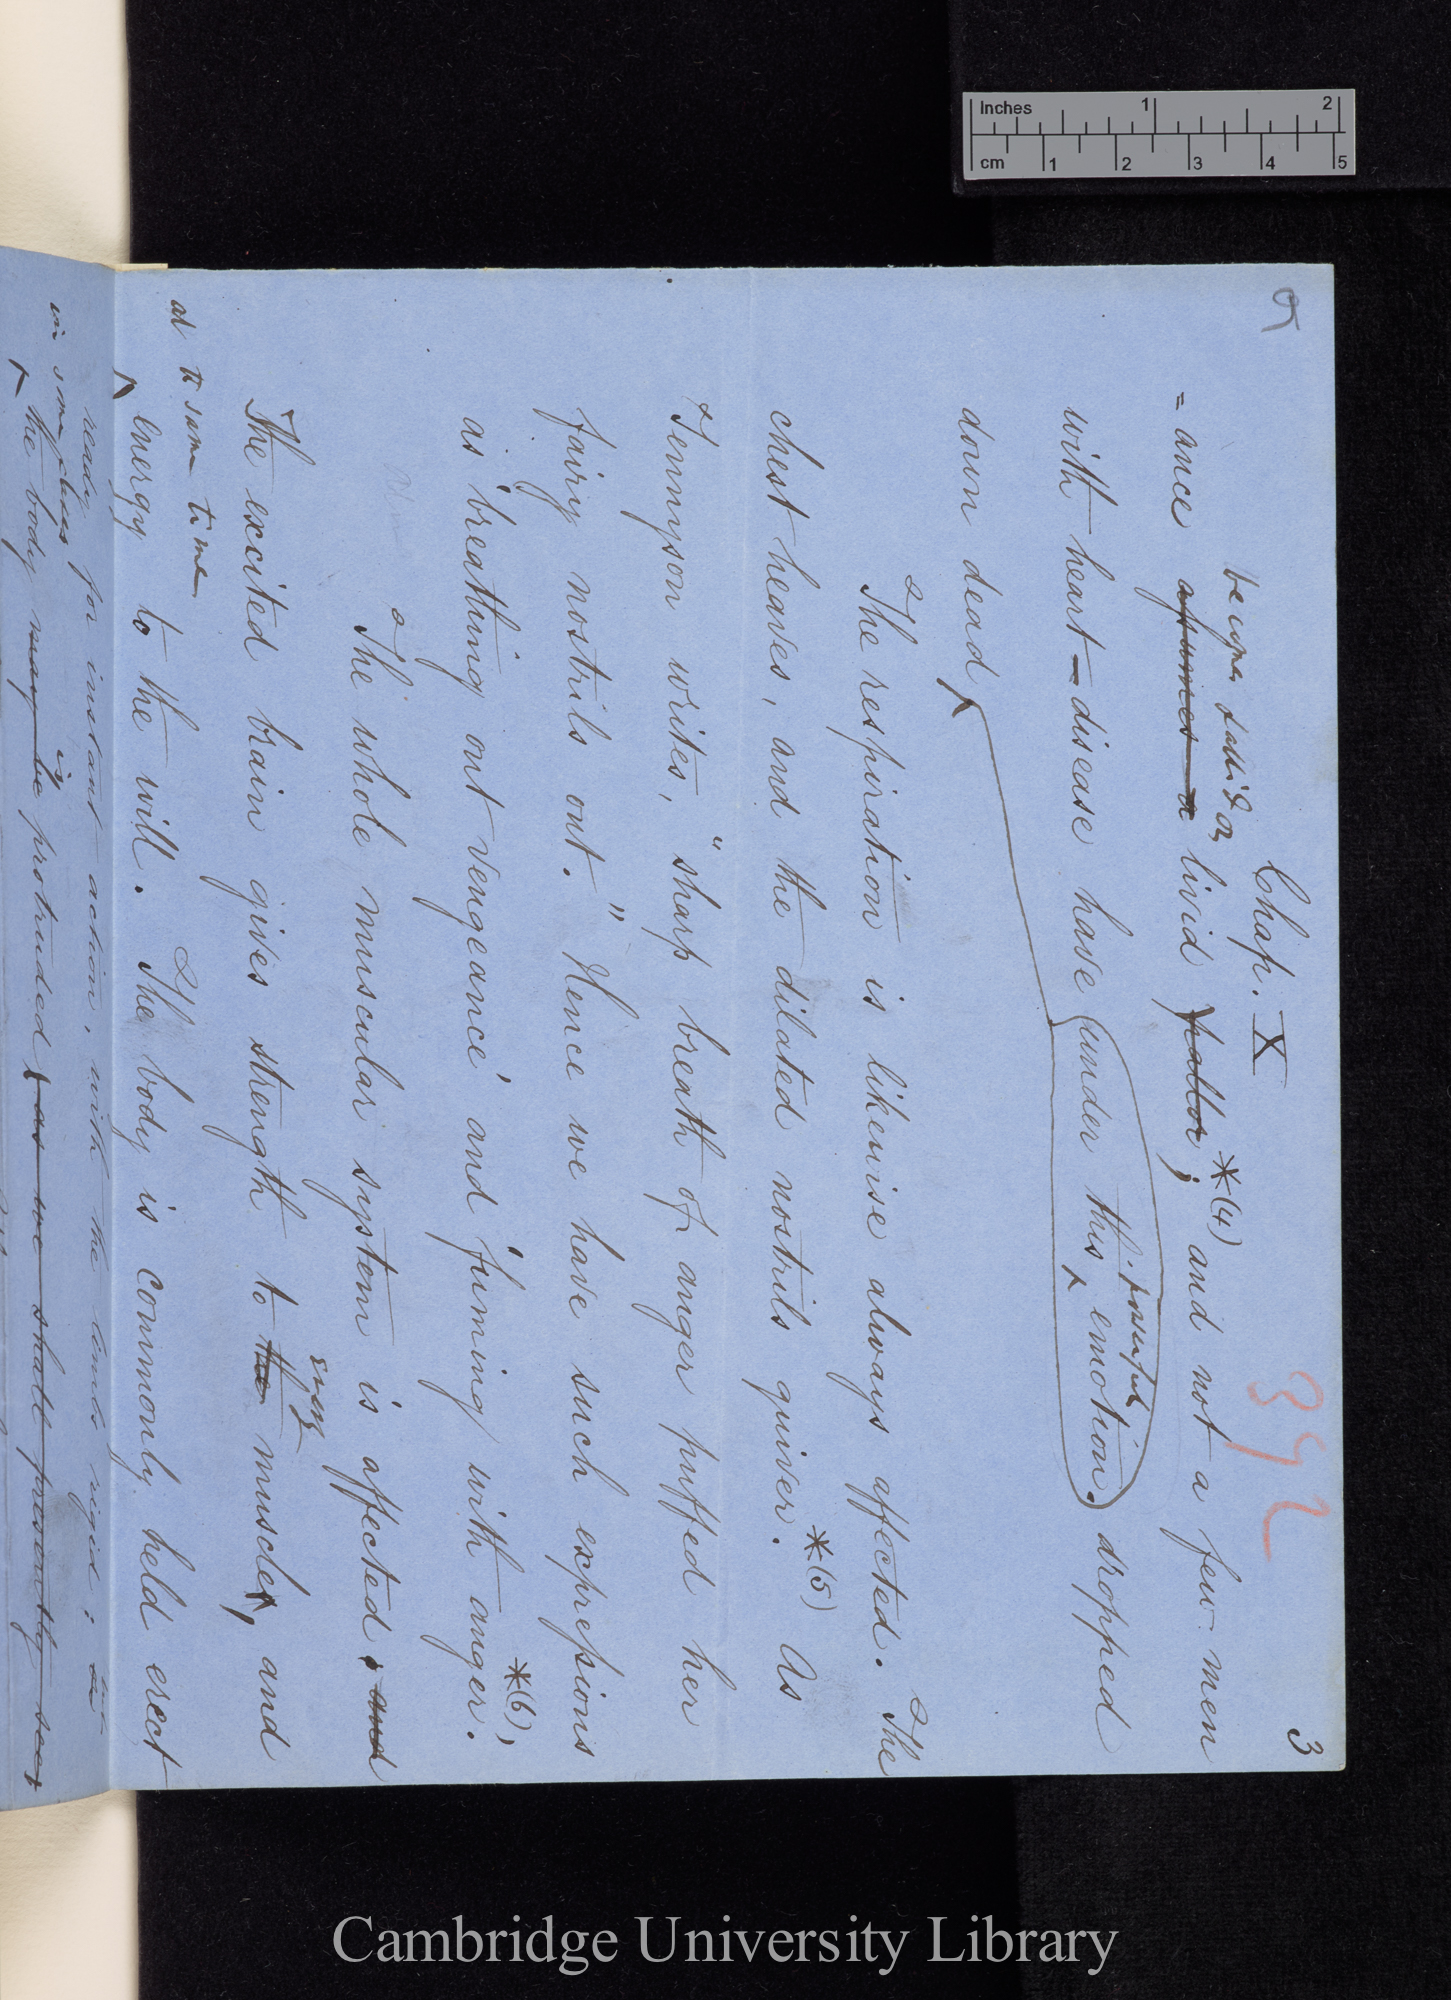 9
3
Chap. X
392
becomes pallid or
= ance assumes a livid pallor; *(4) and not a few men
powerful
with heart-disease have (under this emotion.) dropped
down dead
The respiration is likewise always affected. The
chest heaves, and the dilated nostrils quiver. *(5) As
Tennyson writes, "sharp breath of anger puffed her
fairy nostrils out." Hence we have such expressions
as 'breathing out vengeance' and 'fuming' with anger. *(6)
The whole muscular system is affected, and
every
The excited brain gives strength to the muscles, and
at the same time
energy to the will. The body is commonly held erect
ready for instant action, with the limbs rigid; but
in some cases is
the body may be protruded, as we shall presently see,
Inches 1 2
cm 1 2 3 4 5
Cambridge University Library